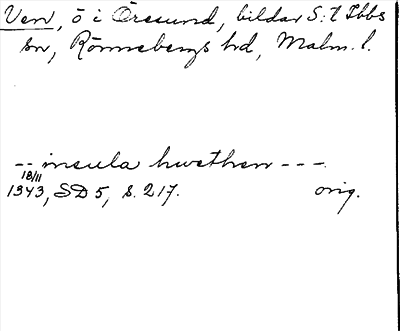 Ven, ö i Öresund, bildar S:t Ibbs
sn, Rönnebergs hd, Malm. l.
-- insula hwethen ---
18/11
1343, SD 5, s. 217. orig.